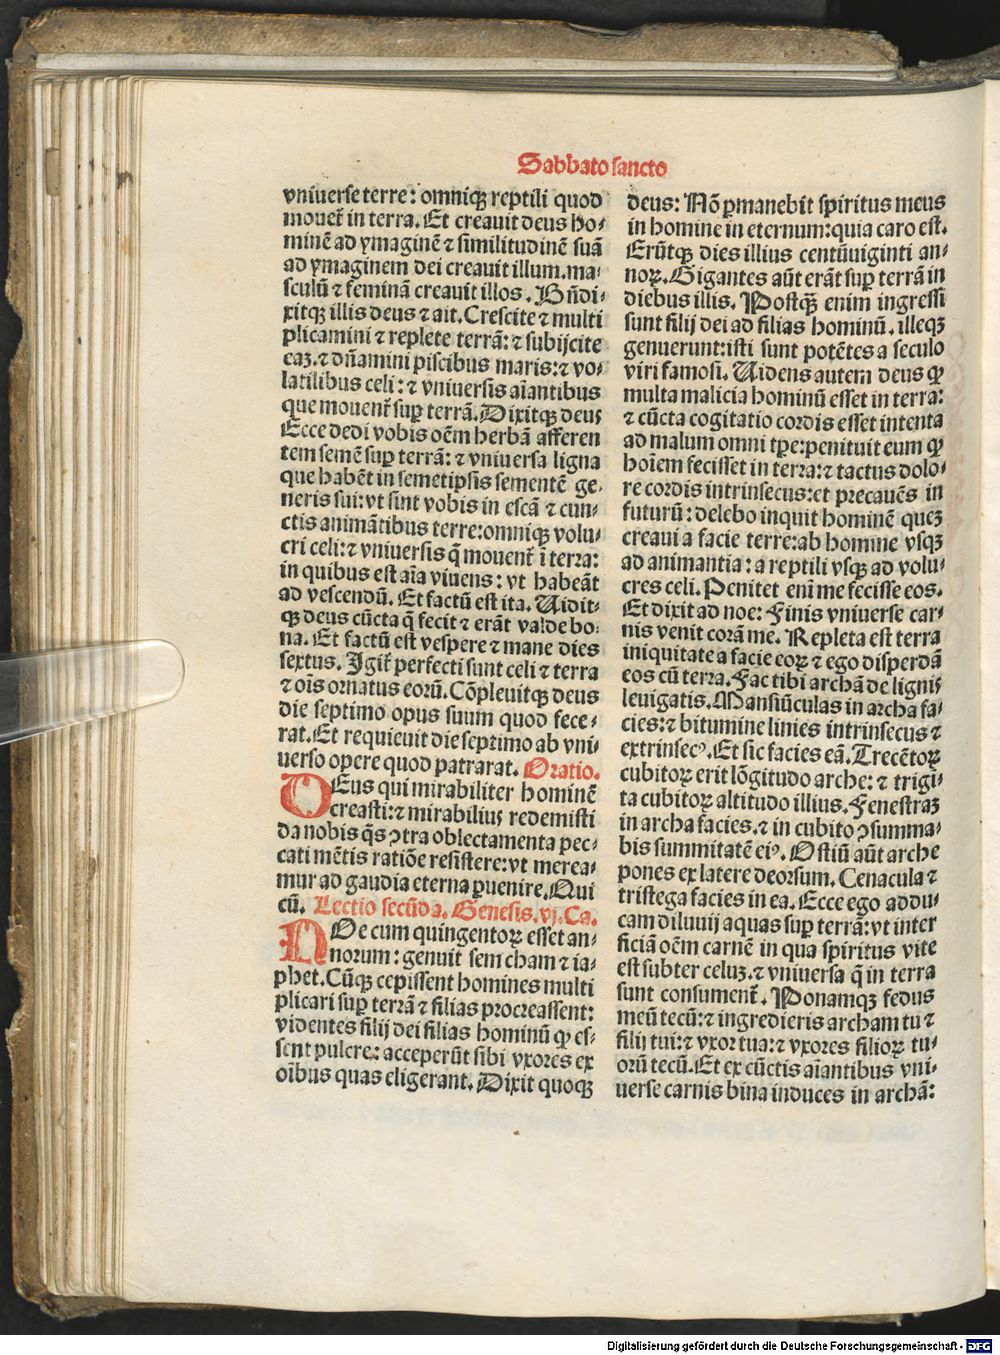 Sabbato sancto
vniuerse terre: omniqꝫ reptili quod
mouet̃ in terra. Et creauit deus ho⸗
minẽ ad ymaginẽ ⁊ similitudinẽ suã
ad ymaginem dei creauit illum. ma⸗
sculũ ⁊ feminã creauit illos. Bñdi⸗
xitqꝫ illis deus ⁊ ait. Crescite ⁊ multi
plicamini ⁊ replete terrã: ⁊ subijcite
eaꝫ. ⁊ dñamini piscibus maris: ⁊ vo⸗
latilibus celi: ⁊ vniuersis aĩantibus
que mouent̃ suꝑ terrã. Dixitqꝫ deus
Ecce dedi vobis oẽm herbã afferen
tem semẽ suꝑ terrã: ⁊ vniuersa ligna
que habẽt in semetipsis sementẽ ge⸗
neris sui: vt sint vobis in escã ⁊ cun⸗
ctis animãtibus terre: omniqꝫ volu⸗
cri celi: ⁊ vniuersis q̃ mouent̃ ĩ terra:
in quibus est aĩa viuens: vt habeãt
ad vescendũ. Et factũ est ita. Uidit⸗
qꝫ deus cũcta q̃ fecit ⁊ erãt valde bo⸗
na. Et factũ est vespere ⁊ mane dies
sextus. Igit̃ perfecti sunt celi ⁊ terra
⁊ oĩs ornatus eorũ. Cõpleuitqꝫ deus
die septimo opus suum quod fece⸗
rat. Et requieuit die septimo ab vni⸗
uerso opere quod patrarat. Oratio.
DEus qui mirabiliter hominẽ
creasti: ⁊ mirabilius redemisti
da nobis q̃s ꝯtra oblectamenta pec⸗
cati mẽtis ratiõe resistere: vt merea⸗
mur ad gaudia eterna ꝑuenire. Qui
cũ. Lectio secũda. Genesis. vj. Ca.
NOe cum quingentoꝝ esset an⸗
norum: genuit sem cham ⁊ ia⸗
phet. Cũqꝫ cepissent homines multi
plicari suꝑ terrã ⁊ filias procreassent:
videntes filij dei filias hominũ ꝙ es⸗
sent pulcre: acceperũt sibi vxores ex
oibus quas eligerant. Dixit quoqꝫ
deus: Nõ ꝑmanebit spiritus meus
in homine in eternum: quia caro est.
Erũtqꝫ dies illius centũuiginti an⸗
noꝝ. Gigantes aũt erãt suꝑ terrã in
diebus illis. Postqꝫ̃ enim ingressi
sunt filij dei ad filias hominũ. illeqꝫ
genuerunt: isti sunt potẽtes a seculo
viri famosi. Uidens autem deus ꝙ
multa malicia hominũ esset in terra:
⁊ cũcta cogitatio cordis esset intenta
ad malum omni tꝑe: penituit eum ꝙ
hoĩem fecisset in terra: ⁊ tactus dolo⸗
re cordis intrinsecus: et precauẽs in
futurũ: delebo inquit hominẽ queꝫ
creaui a facie terre: ab homine vsqꝫ
ad animantia: a reptili vsqꝫ ad volu⸗
cres celi. Penitet enĩ me fecisse eos.
Et dixit ad noe: Finis vniuerse car⸗
nis venit corã me. Repleta est terra
iniquitate a facie eoꝝ ⁊ ego disperdã
eos cũ terra. Fac tibi archã de lignis
leuigatis. Mansiũculas in archa fa⸗
cies: ⁊ bitumine linies intrinsecus ⁊
extrinsecꝰ. Et sic facies eã. Trecẽtoꝝ
cubitoꝝ erit lõgitudo arche: ⁊ trigi⸗
ta cubitoꝝ altitudo illius. Fenestraꝫ
in archa facies. ⁊ in cubito ꝯsumma⸗
bis summitatẽ eiꝰ. Ostiũ aũt arche
pones ex latere deorsum. Cenacula ⁊
tristega facies in ea. Ecce ego addu⸗
cam diluuij aquas suꝑ terrã: vt inter
ficiã oẽm carnẽ in qua spiritus vite
est subter celuꝫ. ⁊ vniuersa q̃ in terra
sunt consument̃. Ponamqꝫ fedus
meũ tecũ: ⁊ ingredieris archam tu ⁊
filij tui: ⁊ vxor tua: ⁊ vxores filioꝝ tu⸗
orũ tecũ. Et ex cũctis aĩantibus vni⸗
uerse carnis bina induces in archã:
Digitalisierung gefördert durch die Deutsche Forschungsgemeinschaft - DFG